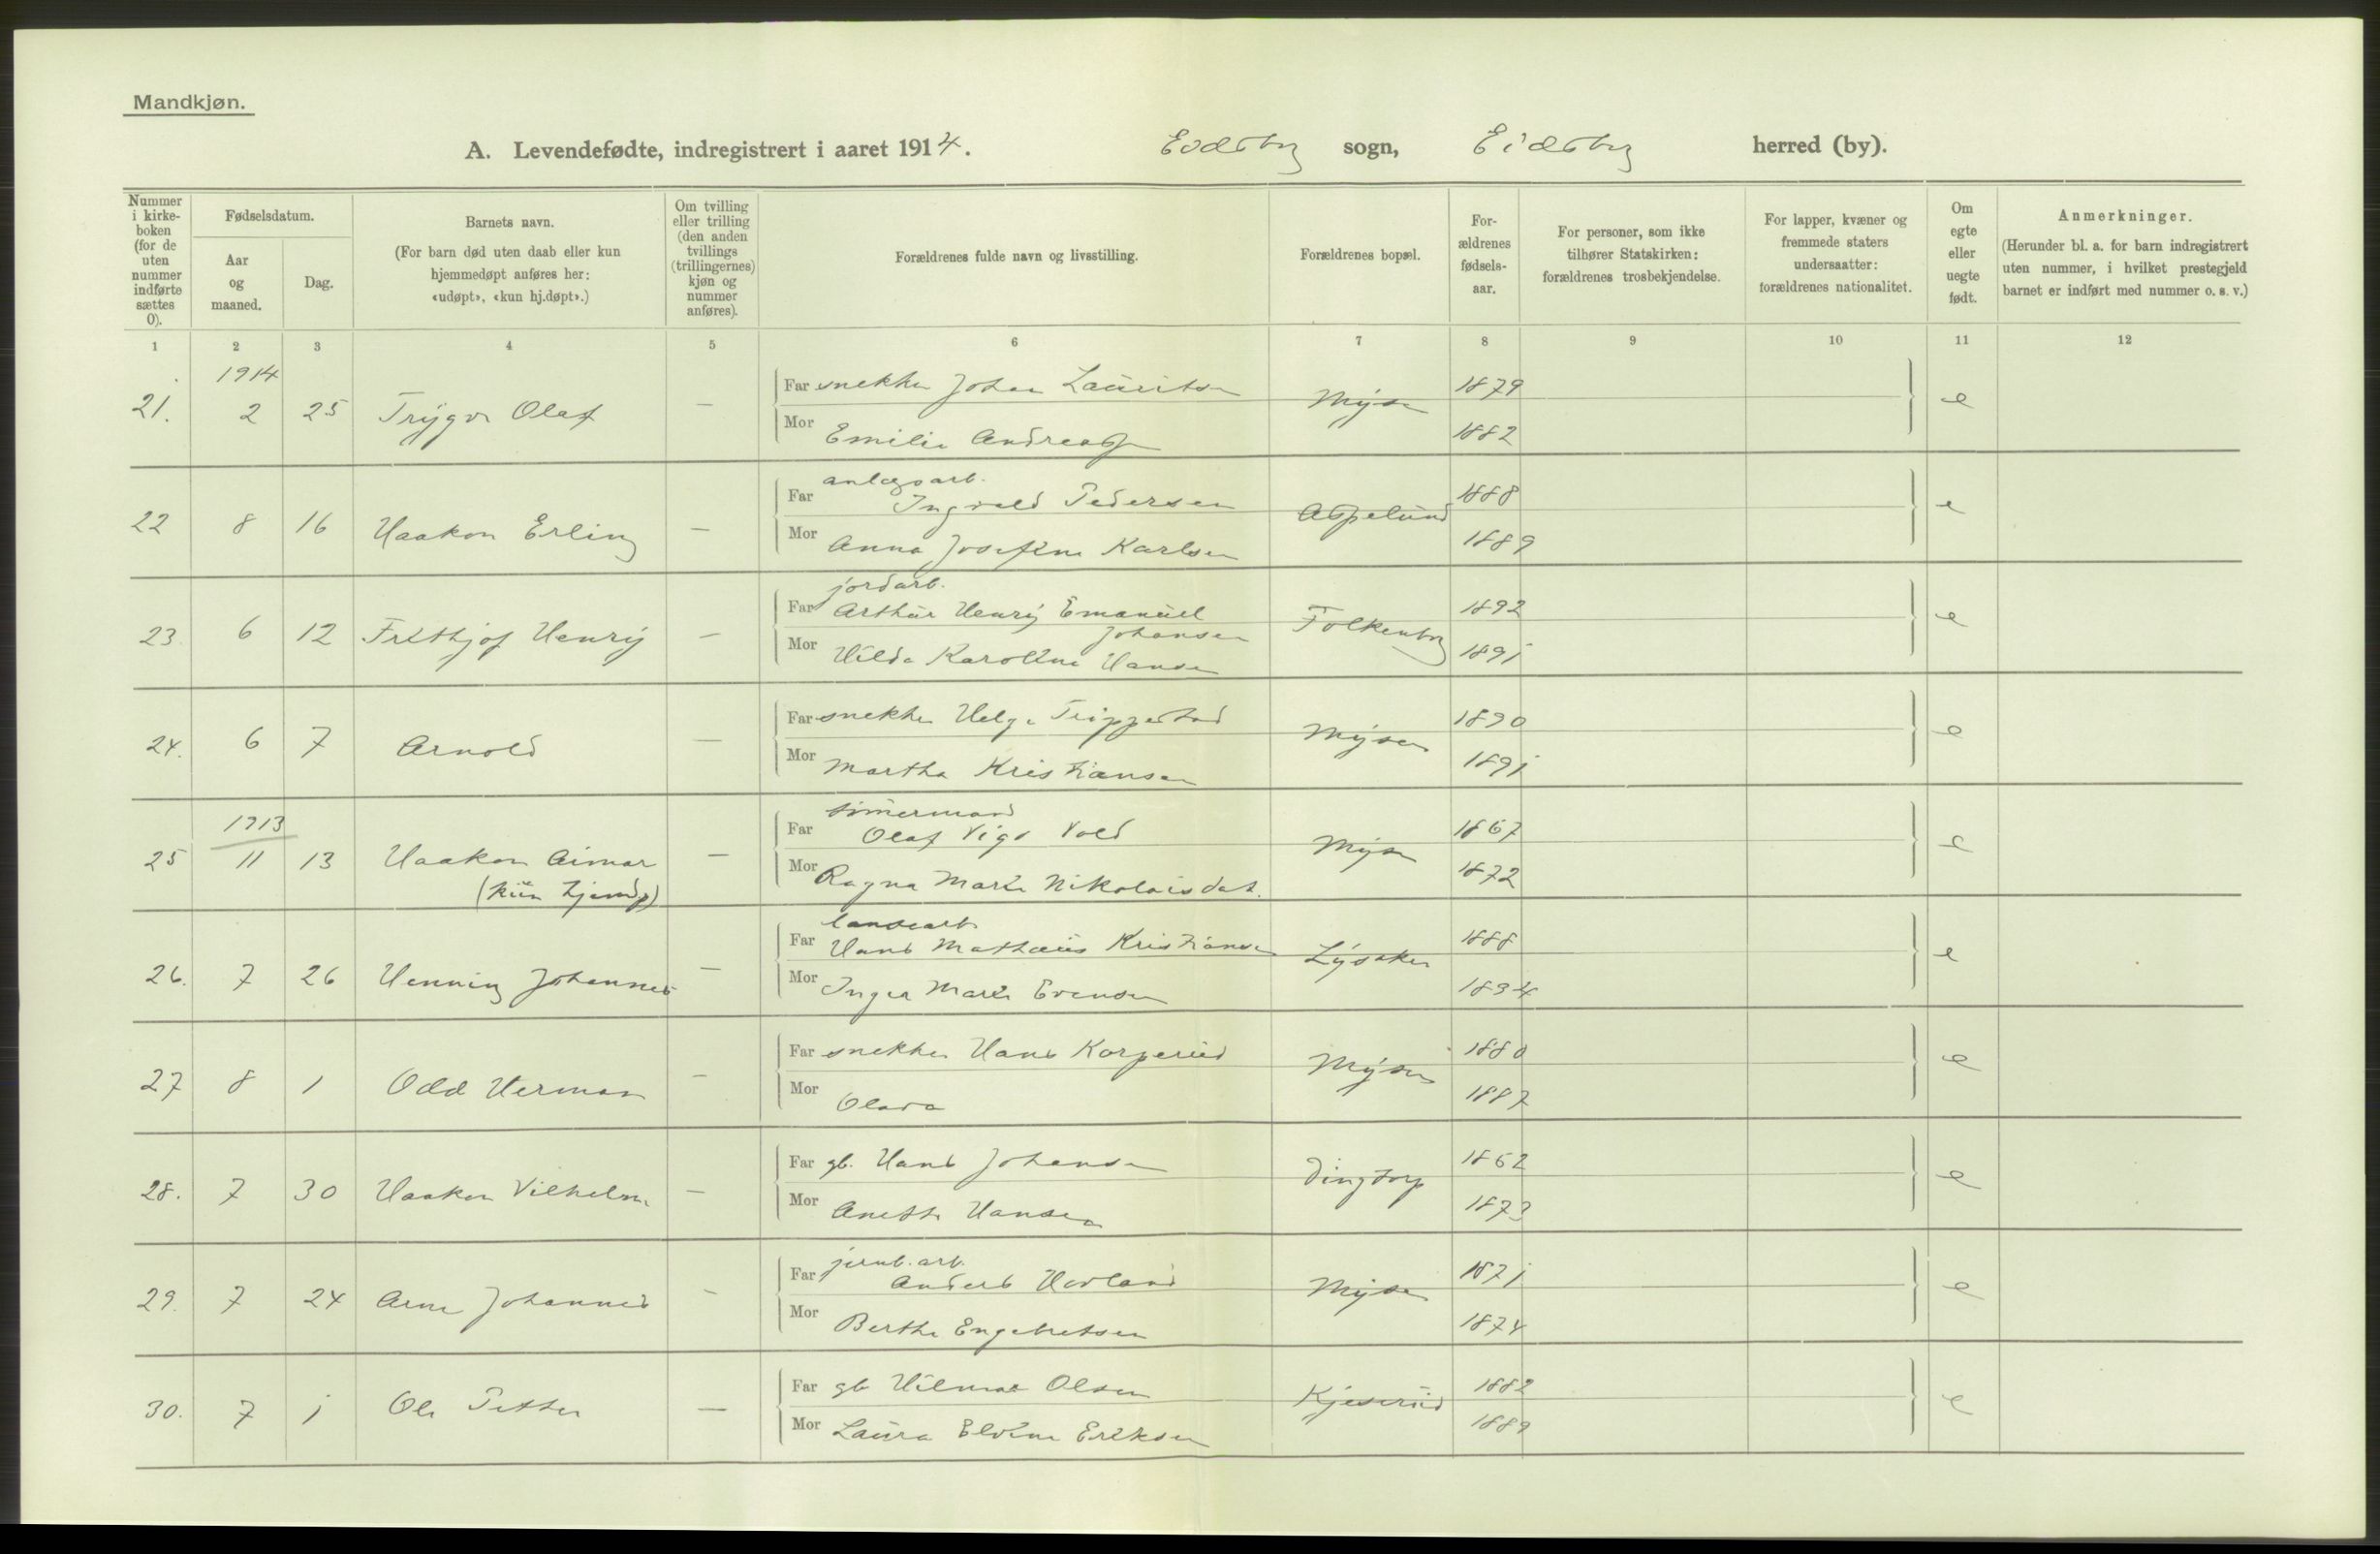 Mandkjøn.
A. Levendefødte, indregistrert i aaret 1914. Eidsbg sogn, Eidsbg herred (by).
Nummer i kirke-boken (for de uten nummer indførte sættes 0).
Fødselsdatum.
Aar og maaned.
Dag.
Barnets navn.
(For barn død uten daab eller kun hjemmedøpt anføres her: «udøpt», «kun hj.døpt».)
Om tvilling eller trilling (den anden tvillings (trillingernes) kjøn og nummer anføres).
Forældrenes fulde navn og livsstilling.
Forældrenes bopæl.
For-ældrenes fødsels-aar.
For personer, som ikke tilhører Statskirken: forældrenes trosbekjendelse.
For lapper, kvæner og fremmede staters undersaatter: forældrenes nationalitet.
Om egte eller uegte født.
Anmerkninger.
(Herunder bl. a. for barn indregistrert uten nummer, i hvilket prestegjeld barnet er indført med nummer o. s. v.)
1 2 3 4 5 6 7 8 9 10 11 12
1914
21. 2 25 Trygve Olaf — Far snekker Johan Lauritsen Mysen 1879 e
Mor Emilie Andreassen 1882
22 8 16 Haakon Erling — Far anlægsarb. Ingvald Pedersen Aspelund 1888 e
Mor Anna Josefine Karlsen 1889
23. 6 12 Frithjof Henry — Far jordarb. Arthur Henry Emanuel Johansen Folkenbg 1892 e
Mor Hilda Karoline Hansen 1891
24. 6 7 Arnold — Far snekker Helge Trippestad Mysen 1890 e
Mor Martha Kristiansen 1891
1913
25 11 13 Haakon Aimar (kun hjemdp) — Far tømermand Olaf Vigo Vold Mysen 1867 e
Mor Ragna Marie Nikolaisdat. 1872
26. 7 26 Henning Johannes — Far landearb. Hans Mathæus Kristiansen Lysaker 1888 e
Mor Inger Marie Evensen 1894
27 8 1 Odd Herman — Far snekker Hans Korperud Mysen 1880 e
Mor Olava 1887
28. 7 30 Haakon Vilhelm — Far gb. Hans Johansen Dingtorp 1862 e
Mor Anette Hansen 1873
29. 7 24 Arne Johannes — Far jernb. arb. Anders Hovland Mysen 1871 e
Mor Berthe Engebretsen 1874
30. 7 1 Ole Petter — Far gb Hilmar Olsen Kjeserud 1882 e
Mor Laura Elvine Eriksen 1889